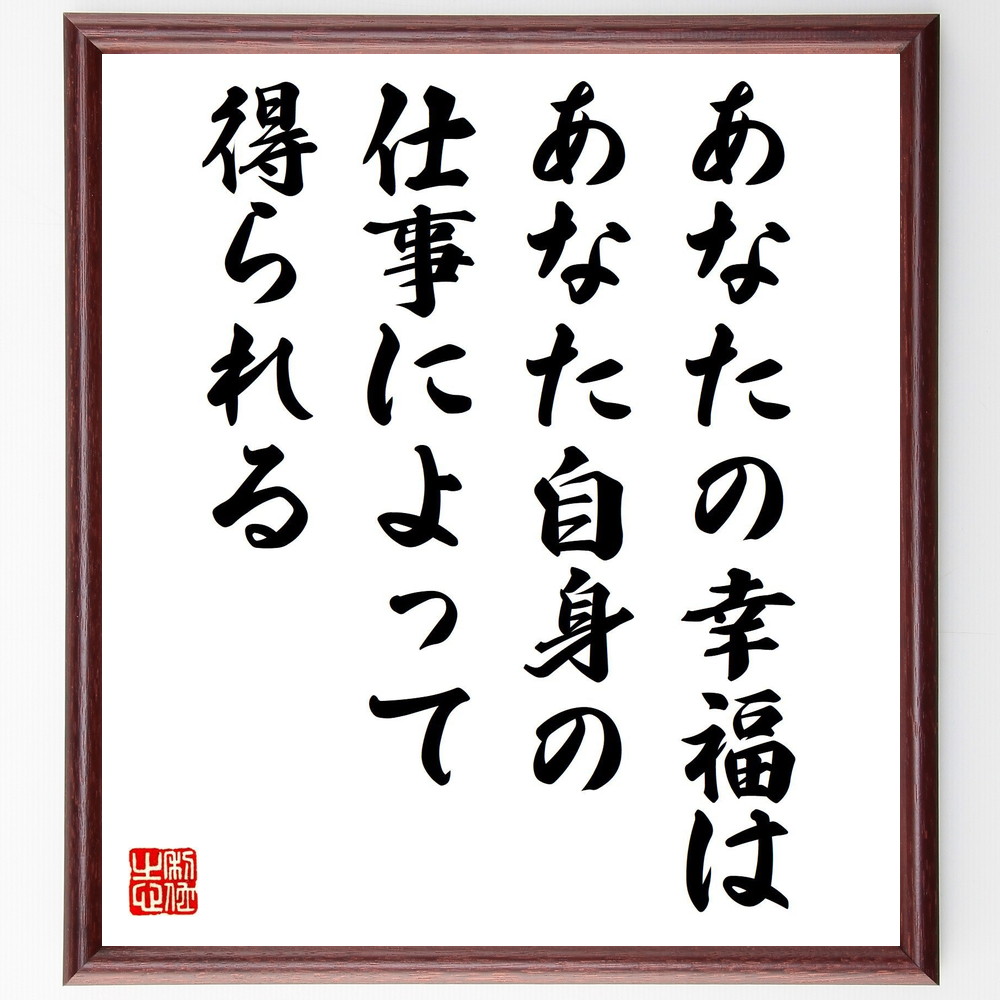 あなたの幸福は
あなた自身の
仕事によって
得られる